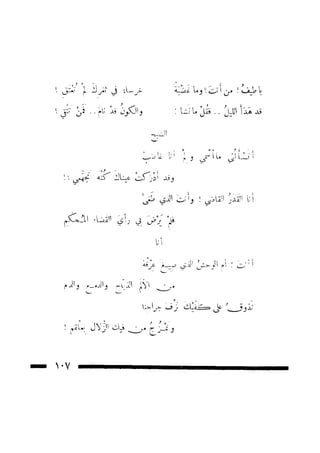 يا طيفُ ! من أنتَ ؟ وما غَضْبَةٌ خرساءُ في ثغركَ لمْ تُعْتَقِ ؟
قد هَدَأَ الليلُ .. فقُلْ ما تشا : والكونُ قدْ نامَ .. فَمَنْ تتَّقي ؟
الشبح
أتَسْأَلُني ما اسمي ولمْ أنا غاضبٌ
وقد أدْرَكتْ عيناكَ كُنْهَ تجهُّمي ؛ !
أنا القدرُ القاضي ! وأنتَ الذي طغى
فلمْ يَرْضَ في رأي القضاء المُحكَّمِ
أنا
أأنتَ ؛ أم الوحشُ الذي صيغَ عِرْقُهُ
من الألمِ الذبّاحِ والدمعِ والدمِ
تذوقُ على كفَّيْكَ نَزْفَ جراحنا
وتمْتزجُ من فيكَ الزُّلالَ بعلْقمِ !
١٠٧